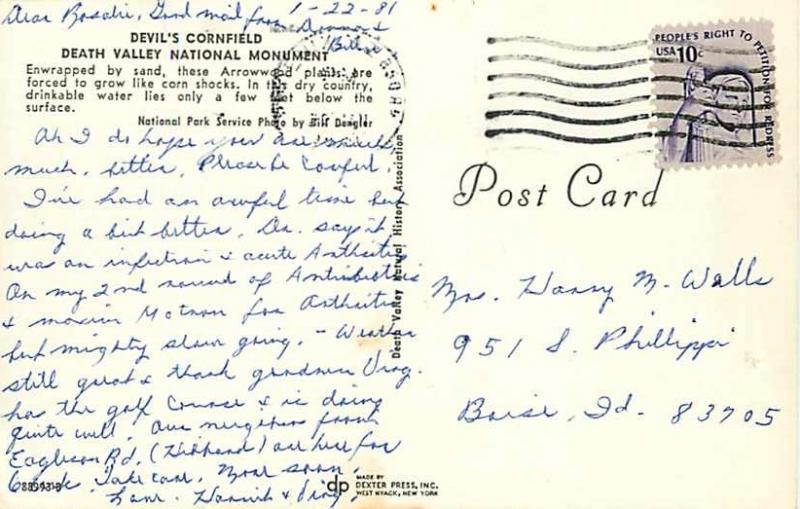 Dear Rosalie, Good mail from 1-22-81
&
Billie
DEVIL'S CORNFIELD
DEATH VALLEY NATIONAL MONUMENT
Enwrapped by sand, these Arrowweed plants are
forced to grow like corn shocks. In this dry country,
drinkable water lies only a few feet below the
surface.
National Park Service Photo by Bill Dengler
Ah I do hope your are
much, better, Please be careful.
I've had an awful time but
doing a bit better, Drs. say it
was an infection & acute Arthritis
On my 2nd round of Antibiotics
& Motron for Arthritis
but mighty slow going. - Weather
still great & thank goodness Virg.
has the golf course & is doing
quite well. Our neighbors from
Eagleson Rd. (Hibbard) are here for
6 wk. Take care, More soon,
Love. & Virg.
88993-B
Death Valley Natural History Association
dp
MADE BY
DEXTER PRESS, INC.
WEST NYACK, NEW YORK
PEOPLE'S RIGHT TO PETITION FOR REDRESS
USA 10c
Post Card
Mrs. Harry M. Walls
951 S. Phillippi
Boise, Id. 83705